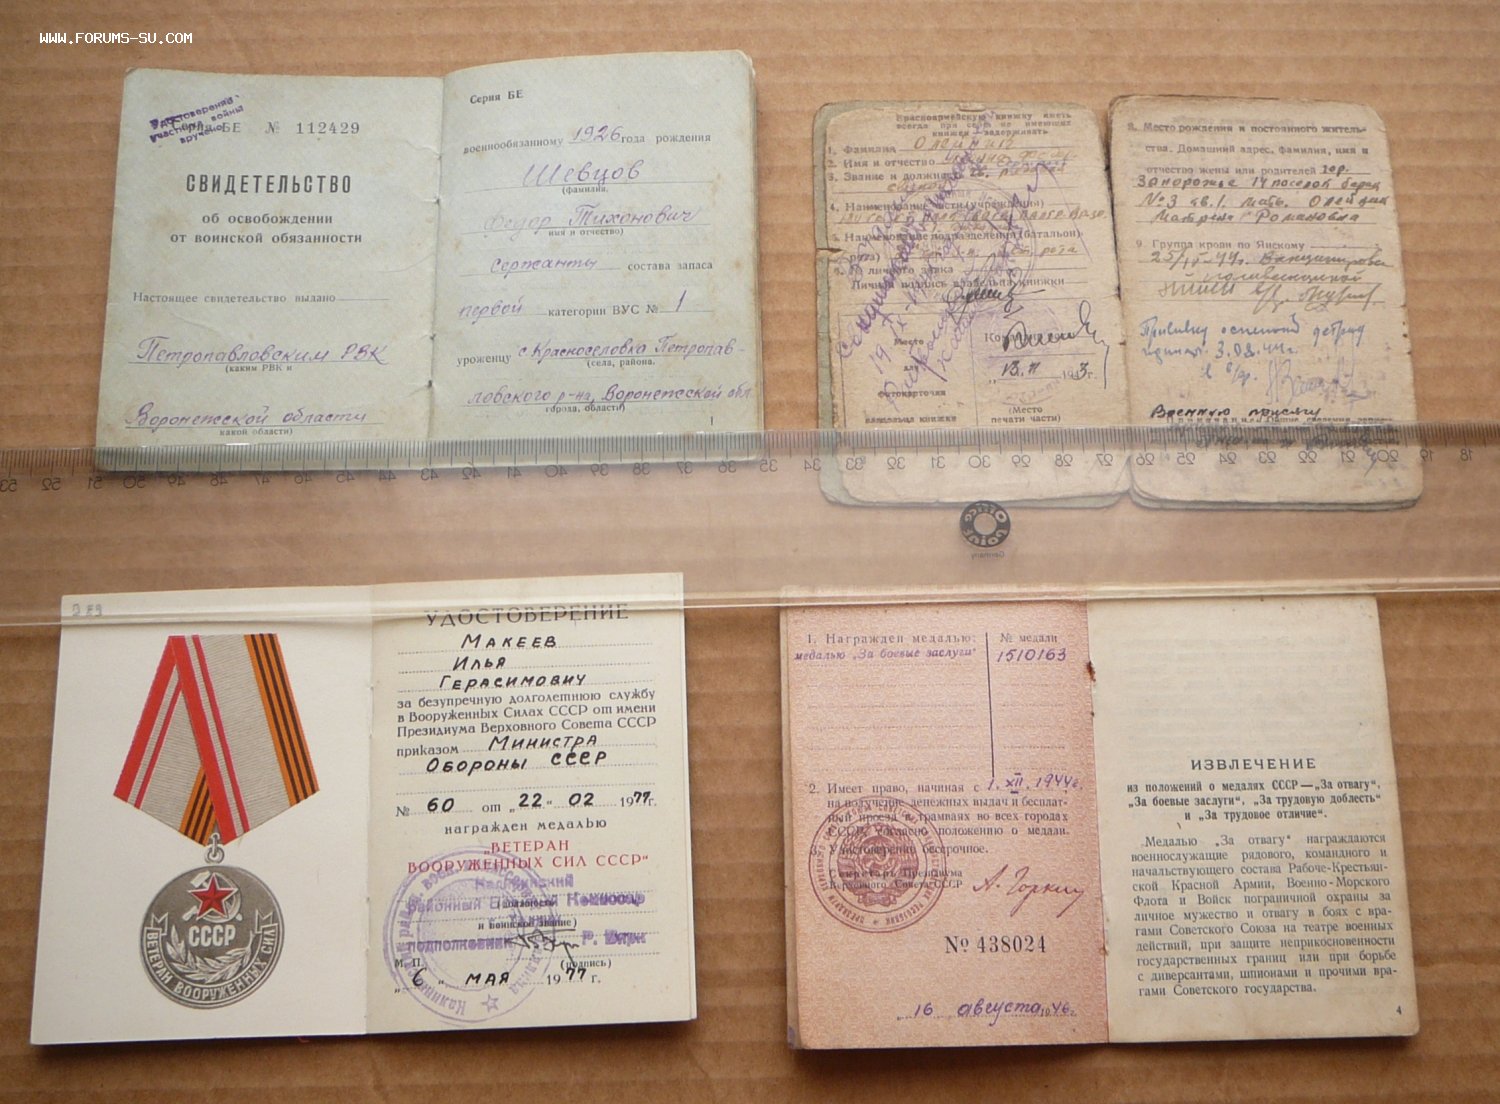 WWW.FORUMS-SU.COM
Удостоверение
участника войны
вручено
Серия БЕ № 112429
СВИДЕТЕЛЬСТВО
об освобождении
от воинской обязанности
Настоящее свидетельство выдано
Петропавловским РВК
(каким РВК и
Воронежской области
какой области)
Серия БЕ
военнообязанному 1926 года рождения
Шевцов
(фамилия,
Федор Тихонович
имя и отчество)
сержанты состава запаса
первой категории ВУС № 1
уроженцу с. Красноселовка Петропав-
(села, района.
ловского р-на, Воронежской обл.
города, области)
1
Красноармейскую книжку иметь
всегда при себе не имеющих
книжек задерживать
1. Фамилия Олейник
2. Имя и отчество
3. Звание и должность
4. Наименование части (учреждения)
5. Наименование подразделения (батальон-
рота) рота
Личная подпись владельца книжки
Место
для
фотокарточки
владельца книжки
13. 1943 г.
(Место
печати части)
8. Место рождения и постоянного житель-
ства. Домашний адрес, фамилия, имя и
отчество жены или родителей гор.
Запорожье 14 поселок барак
№3 кв. 1. мать. Олейник
Матрена Романовна
9. Группа крови по Янскому
Прививку оспенной детрит
3.08.44г.
Военную присягу
53 52 51 50 49 48 47 46 45 44 43 42 41 40 39 38 37 36 35 34 33 32 31 30 29 28 27 26 25 24 23 22 21 20 19 18
Office Point
Germany
УДОСТОВЕРЕНИЕ
Макеев
Илья
Герасимович
за безупречную долголетнюю службу
в Вооруженных Силах СССР от имени
Президиума Верховного Совета СССР
приказом Министра
Обороны СССР
№ 60 от „22“ 02 1977 г.
награжден медалью
"ВЕТЕРАН
ВООРУЖЕННЫХ СИЛ СССР"
Районный Военный Комиссар
и воинское звание)
подполковник
М. П. (подпись)
„6“ мая 1977 г.
СССР
ВЕТЕРАН ВООРУЖЕННЫХ СИЛ
1. Награжден медалью: № медали
медалью „За боевые заслуги“ 1510163
2. Имеет право, начиная с 1. XII. 1944 г.
на получение денежных выдач и бесплат-
ный проезд в трамваях во всех городах
СССР, согласно положению о медали.
3. Удостоверение бессрочное.
Секретарь Президиума
Верховного Совета СССР А. Горкин
№ 438024
„16 августа 1946 г.
ИЗВЛЕЧЕНИЕ
из положений о медалях СССР—„За отвагу“,
„За боевые заслуги“, „За трудовую доблесть“
и „За трудовое отличие“.
Медалью „За отвагу“ награждаются
военнослужащие рядового, командного и
начальствующего состава Рабоче-Крестьян-
ской Красной Армии, Военно-Морского
Флота и Войск пограничной охраны за
личное мужество и отвагу в боях с вра-
гами Советского Союза на театре военных
действий, при защите неприкосновенности
государственных границ или при борьбе
с диверсантами, шпионами и прочими вра-
гами Советского государства.
4